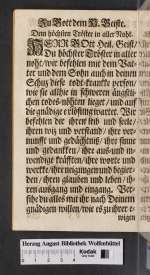 Zu Gott dem H. Geiste.
Dem höchsten Tröster in aller Noht.
HERR GOtt Heil. Geist/
Du höchster Tröster in aller
noht/ wir befehlen mit dem Vat-
ter und dem Sohn auch in deinen
Schutz diese todt-krancke person/
wie sie allhie in schweren ängstli-
chen todes-nöhten lieget/ und auf
die gnädige erlösung wartet. Wir
befehlen dir ihren leib und seele/
ihren witz und verstand/ ihre ver-
nunfft und gedächtniß/ ihre sinne
und gedancken/ ihre aus- und in-
wendige kräfften/ ihre worte und
wercke/ ihre neigungen und begier-
den/ ihren glauben und leben/ ih-
ren ausgang und eingang. Ver-
sihe du alles mit ihr nach Deinem
gnädigen willen/ wie es zu ihrer e-
wigen
Herzog August Bibliothek Wolfenbüttel
Kodak